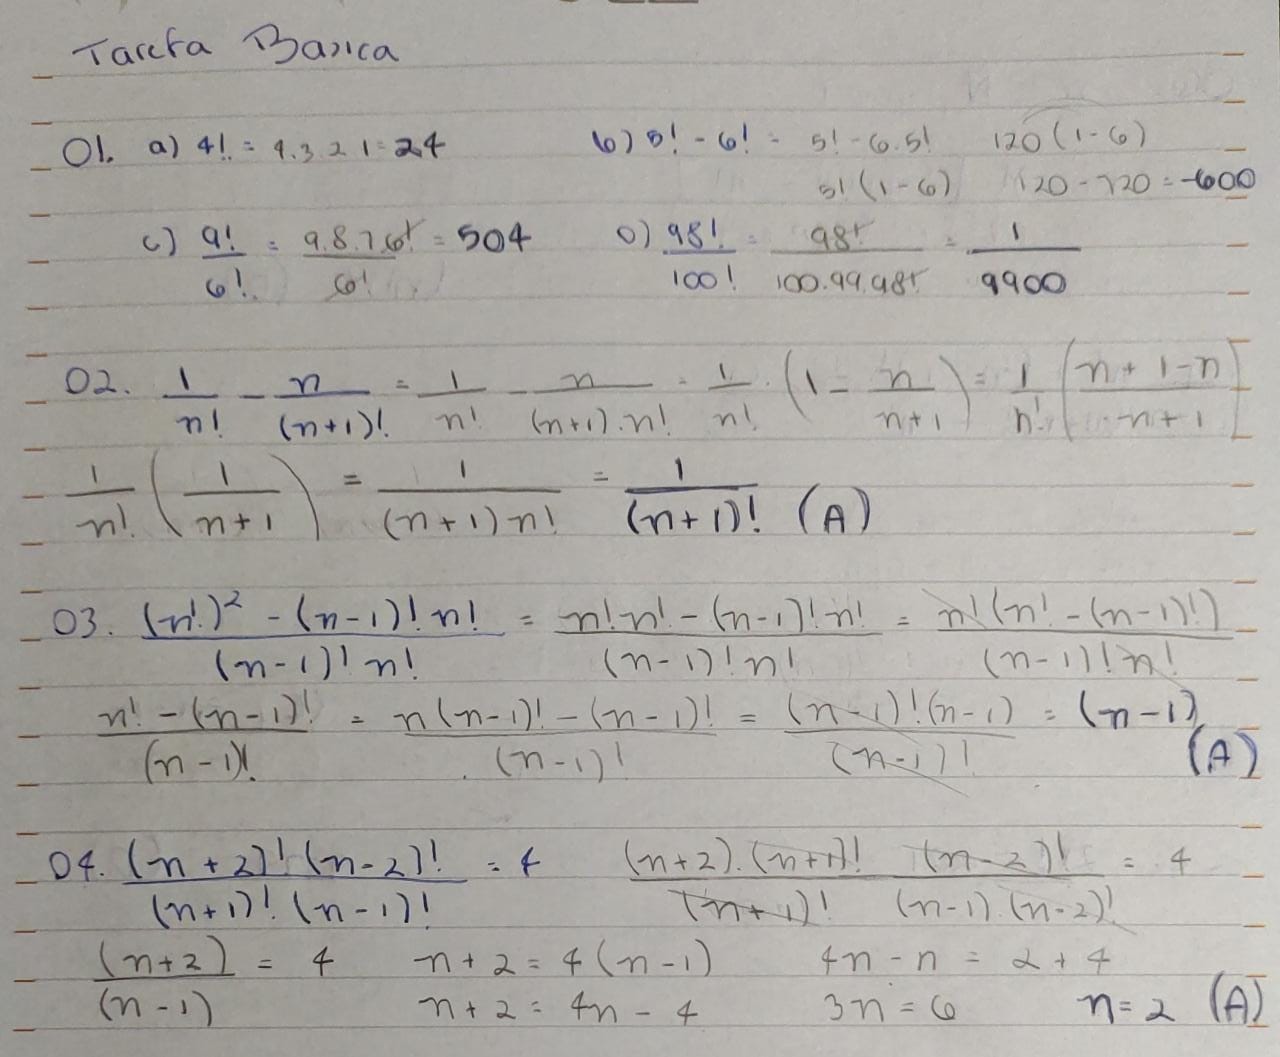 Tarefa Basica
01. a) 4! = 4.3 2 1 = 24 b) 5! - 6! = 5! - 6.5! 120 (1 - 6)
5! (1 - 6) 120 - 720 = -600
c) 9!/6! = 9.8.7.6!/6! = 504 D) 98!/100! = 98!/100.99.98! = 1/9900
02. 1/n! - n/(n+1)! = 1/n! - n/(n+1).n! = 1/n! . (1 - n/n+1) = 1/n! (n + 1 - n/n + 1)
1/n! (1/n+1) = 1/(n+1) n! = 1/(n+1)! (A)
03. (n!)² - (n-1)! n!/(n-1)! n! = n! n! - (n-1)! n!/(n-1)! n! = n! (n! - (n-1)!)/(n-1)! n!
n! - (n-1)!/(n-1)! = n (n-1)! - (n-1)!/(n-1)! = (n-1)! (n-1)/(n-1)! = (n-1) (A)
04. (n+2)! (n-2)!/(n+1)! (n-1)! = 4 (n+2).(n+1)! (n-2)!/(n+1)! (n-1).(n-2)! = 4
(n+2)/(n-1) = 4 n + 2 = 4 (n-1) 4n - n = 2 + 4
n + 2 = 4n - 4 3n = 6 n = 2 (A)